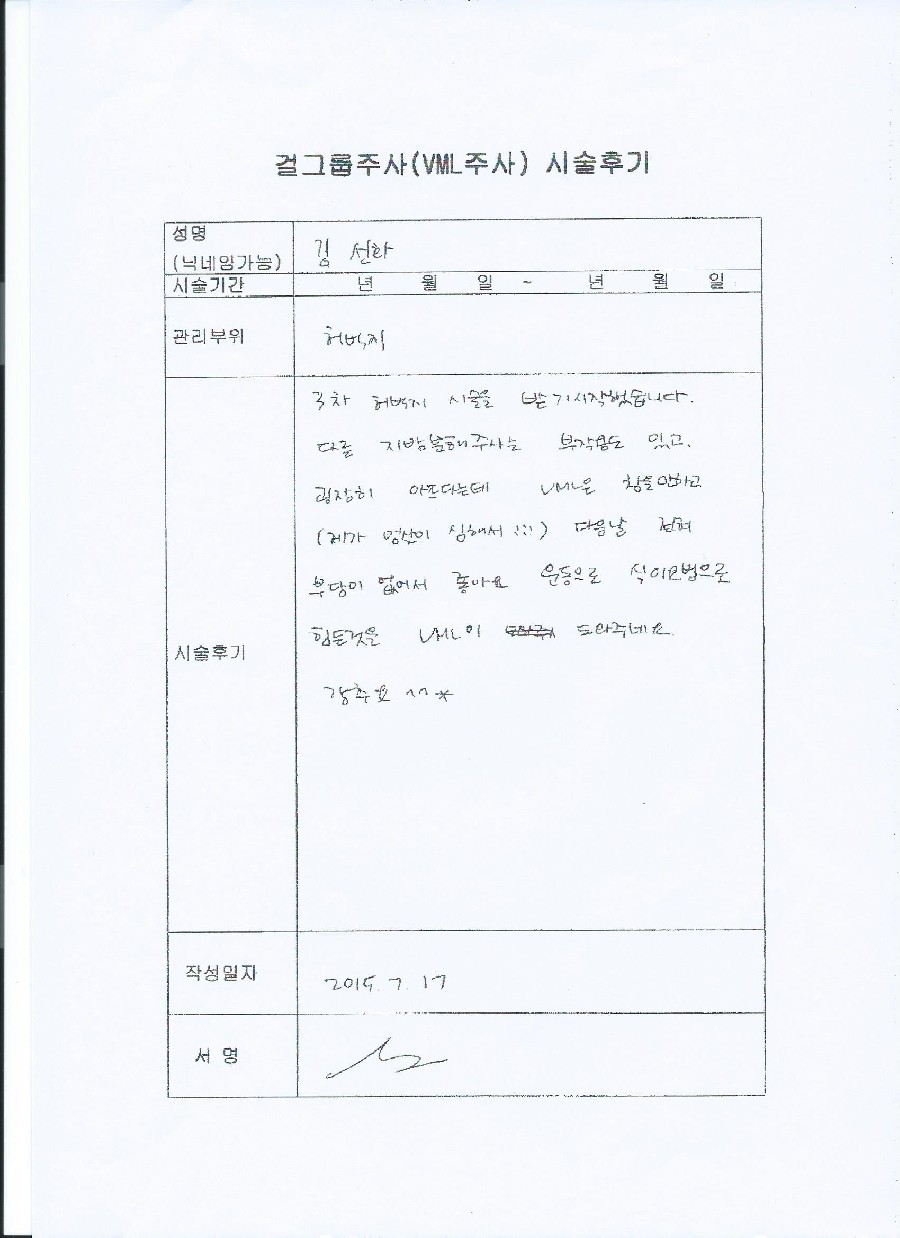 걸그룹주사(VML주사) 시술후기
성명
(닉네임가능)
김 선하
시술기간 년 월 일 ~ 년 월 일
관리부위 허벅지
3차 허벅지 시술을 받기시작했습니다.
다른 지방분해주사는 부작용도 있고.
굉장히 아프다는데 VML은
(제가 엄살이 심해서 !!!) 다음날 전혀
부담이 없어서 좋아요 운동으로 식이요법으로
힘든것을 VML이 도와주네요.
강추요 ^^*
시술후기
작성일자 2015. 7. 17
서 명